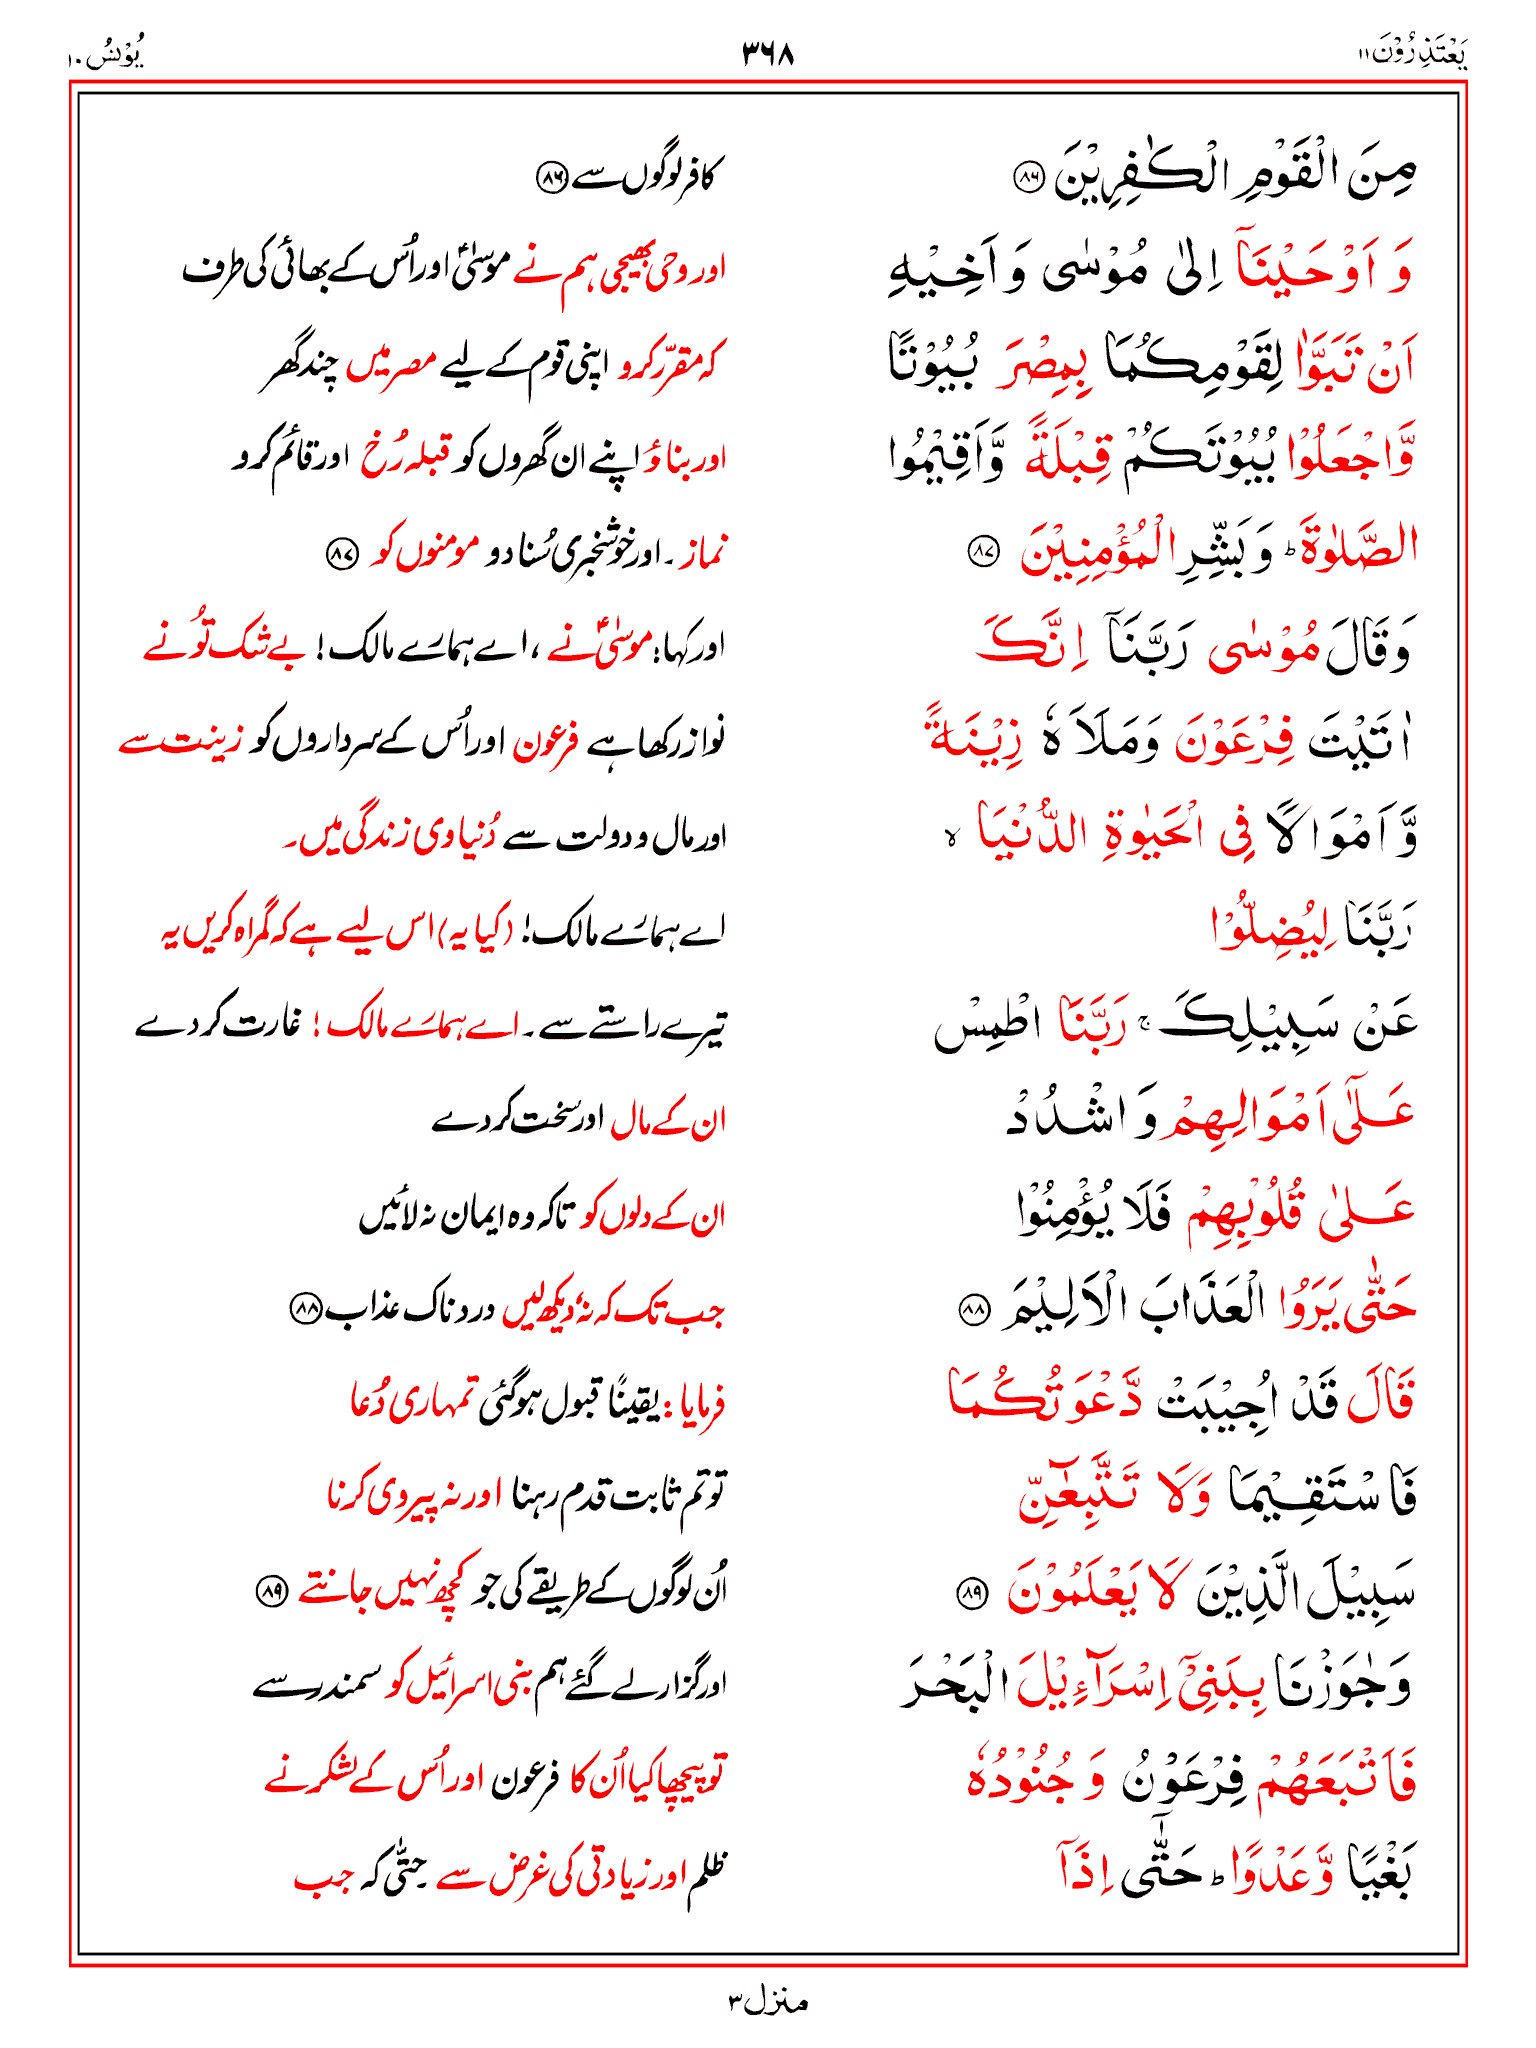 يَعْتَذِرُوْنَ ١١ ٣٦٨ يُوْنُسُ ١٠
مِنَ الْقَوْمِ الْكٰفِرِيْنَ ﴿٨٦﴾ کافر لوگوں سے ﴿٨٦﴾
وَ اَوْحَيْنَاۤ اِلٰى مُوْسٰى وَ اَخِيْهِ اور وحی بھیجی ہم نے موسٰیؑ اور اُس کے بھائی کی طرف
اَنْ تَبَوَّاٰ لِقَوْمِكُمَا بِمِصْرَ بُيُوْتًا کہ مقرّر کرو اپنی قوم کے لیے مصر میں چند گھر
وَّاجْعَلُوْا بُيُوْتَكُمْ قِبْلَةً وَّاَقِيْمُوا اور بناؤ اپنے ان گھروں کو قبلہ رُخ اور قائم کرو
الصَّلٰوةَ ؕ وَ بَشِّرِ الْمُؤْمِنِيْنَ ﴿٨٧﴾ نماز۔ اور خوشخبری سُنا دو مومنوں کو ﴿٨٧﴾
وَقَالَ مُوْسٰى رَبَّنَاۤ اِنَّكَ اور کہا: موسٰیؑ نے، اے ہمارے مالک! بے شک توُ نے
اٰتَيْتَ فِرْعَوْنَ وَمَلَاَهٗ زِيْنَةً نواز رکھا ہے فرعون اور اُس کے سرداروں کو زینت سے
وَّ اَمْوَالًا فِى الْحَيٰوةِ الدُّنْيَا ۙ اور مال و دولت سے دُنیاوی زندگی میں۔
رَبَّنَا لِيُضِلُّوْا اے ہمارے مالک! (کیا یہ) اس لیے ہے کہ گمراہ کریں یہ
عَنْ سَبِيْلِكَ ۚ رَبَّنَا اطْمِسْ تیرے راستے سے۔ اے ہمارے مالک! غارت کر دے
عَلٰٓى اَمْوَالِهِمْ وَ اشْدُدْ ان کے مال اور سخت کر دے
عَلٰى قُلُوْبِهِمْ فَلَا يُؤْمِنُوْا ان کے دلوں کو تاکہ وہ ایمان نہ لائیں
حَتّٰى يَرَوُا الْعَذَابَ الْاَلِيْمَ ﴿٨٨﴾ جب تک کہ نہ دیکھ لیں دردناک عذاب ﴿٨٨﴾
قَالَ قَدْ اُجِيْبَتْ دَّعْوَتُكُمَا فرمایا: یقینًا قبول ہوگئی تمہاری دُعا
فَاسْتَقِيْمَا وَلَا تَتَّبِعٰٓنِّ تو تم ثابت قدم رہنا اور نہ پیروی کرنا
سَبِيْلَ الَّذِيْنَ لَا يَعْلَمُوْنَ ﴿٨٩﴾ اُن لوگوں کے طریقے کی جو کچھ نہیں جانتے ﴿٨٩﴾
وَجٰوَزْنَا بِبَنِىْۤ اِسْرَآءِيْلَ الْبَحْرَ اور گزار لے گئے ہم بنی اسرائیل کو سمندر سے
فَاَتْبَعَهُمْ فِرْعَوْنُ وَ جُنُوْدُهٗ تو پیچھا کیا اُن کا فرعون اور اُس کے لشکر نے
بَغْيًا وَّعَدْوًا ؕ حَتّٰٓى اِذَاۤ ظلم اور زیادتی کی غرض سے۔ حتّٰی کہ جب
منزل ٣